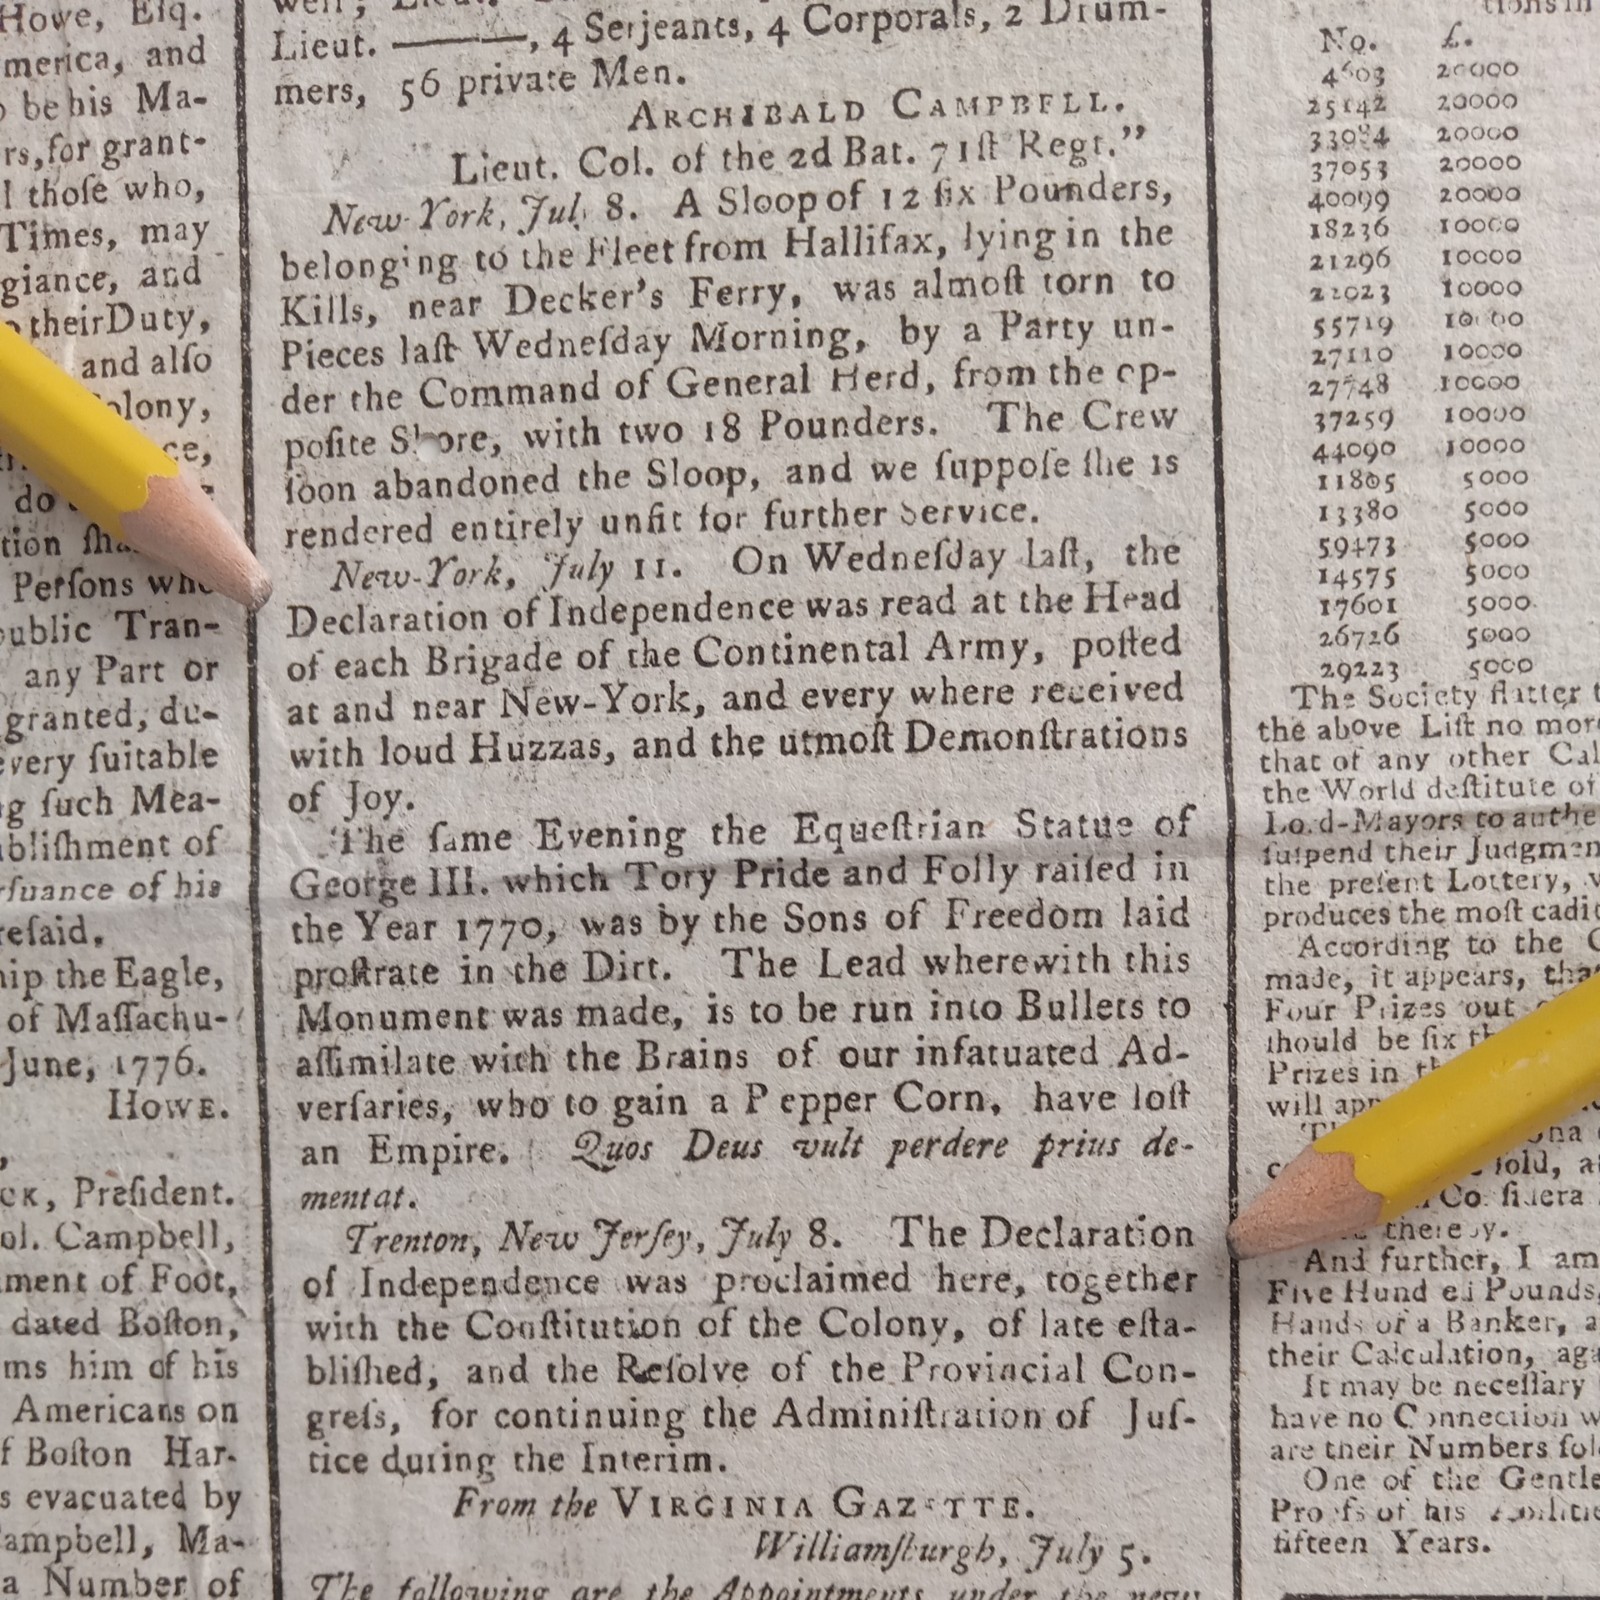 Howe, Esq.
merica, and
be his Ma-
rs, for grant-
l thoſe who,
Times, may
giance, and
their Duty,
and alſo
olony,
ce,
do
tion
Perſons who
public Tran-
any Part or
granted, du-
every ſuitable
ng ſuch Mea-
abliſhment of
rſuance of his
reſaid.
hip the Eagle,
of Maſſachu-
June, 1776.
HOWE.
CK, Preſident.
ol. Campbell,
ment of Foot,
dated Boſton,
ms him of his
Americans on
f Boſton Har-
s evacuated by
Campbell, Ma-
a Number of
well; Lieut.
Lieut. ———, 4 Serjeants, 4 Corporals, 2 Drum-
mers, 56 private Men.
ARCHIBALD CAMPBELL.
Lieut. Col. of the 2d Bat. 71ſt Regt.”
New-York, Jul. 8. A Sloop of 12 ſix Pounders,
belonging to the Fleet from Hallifax, lying in the
Kills, near Decker's Ferry, was almoſt torn to
Pieces laſt Wedneſday Morning, by a Party un-
der the Command of General Herd, from the op-
poſite Shore, with two 18 Pounders. The Crew
ſoon abandoned the Sloop, and we ſuppoſe ſhe is
rendered entirely unfit for further Service.
New-York, July 11. On Wedneſday laſt, the
Declaration of Independence was read at the Head
of each Brigade of the Continental Army, poſted
at and near New-York, and every where received
with loud Huzzas, and the utmoſt Demonſtrations
of Joy.
The ſame Evening the Equeſtrian Statue of
George III. which Tory Pride and Folly raiſed in
the Year 1770, was by the Sons of Freedom laid
proſtrate in the Dirt. The Lead wherewith this
Monument was made, is to be run into Bullets to
aſſimilate with the Brains of our infatuated Ad-
verſaries, who to gain a Pepper Corn, have loſt
an Empire. Quos Deus vult perdere prius de-
mentat.
Trenton, New Jerſey, July 8. The Declaration
of Independence was proclaimed here, together
with the Conſtitution of the Colony, of late eſta-
bliſhed, and the Reſolve of the Provincial Con-
greſs, for continuing the Adminiſtration of Juſ-
tice during the Interim.
From the VIRGINIA GAZETTE.
Williamſburgh, July 5.
The following are the Appointments under the new
tions in
No. £.
4603 20000
25142 20000
33984 20000
37053 20000
40099 20000
18236 10000
21296 10000
22023 10000
55719 10000
27110 10000
27748 10000
37259 10000
44090 10000
11805 5000
13380 5000
59473 5000
14575 5000
17601 5000
26726 5000
29223 5000
The Society flatter t
the above Liſt no mor
that of any other Cal
the World deſtitute of
Lord-Mayors to authe
ſuſpend their Judgmen
the preſent Lottery,
produces the moſt cadi
According to the C
made, it appears, that
Four Prizes out
ſhould be ſix
Prizes in
will
ſold, a
Co. ſidera
thereby.
And further, I am
Five Hundred Pounds,
Hands of a Banker, a
their Calculation, aga
It may be neceſſary
have no Connection w
are their Numbers ſol
One of the Gentle
Proofs of his Abilitie
fifteen Years.